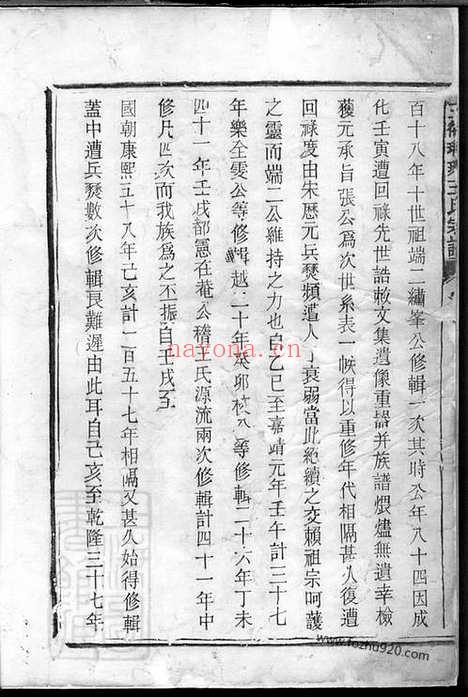 百十八年十世祖端二繡峯公修輯一次其時公年八十四因成
化壬寅遭回祿先世誥敕文集遺像重器并族譜煨燼無遺幸檢
獲元承旨張公爲次世系表一帙得以重修年代相隔甚久復遭
回祿度由宋歷元兵燹頻遭人丁衰弱當此絶續之交賴祖宗呵護
之靈而端二公維持之力也自乙巳至嘉靖元年壬午計三十七
年樂全雯公等修輯越二十年英卯 等修輯二十六年丁未
四十一年壬戌都憲在菴公稽王氏源流兩次修輯計四十一年中
修凡四次而我族爲之丕振自壬戌至
國朝康熙五十八年己亥計一百五十七年相隔又甚久始得修輯
蓋中遭兵燹數次修輯艮難遲由此耳自己亥至乾隆三十七年
王氏宗譜
nayona.cn
www.fozhu920.com